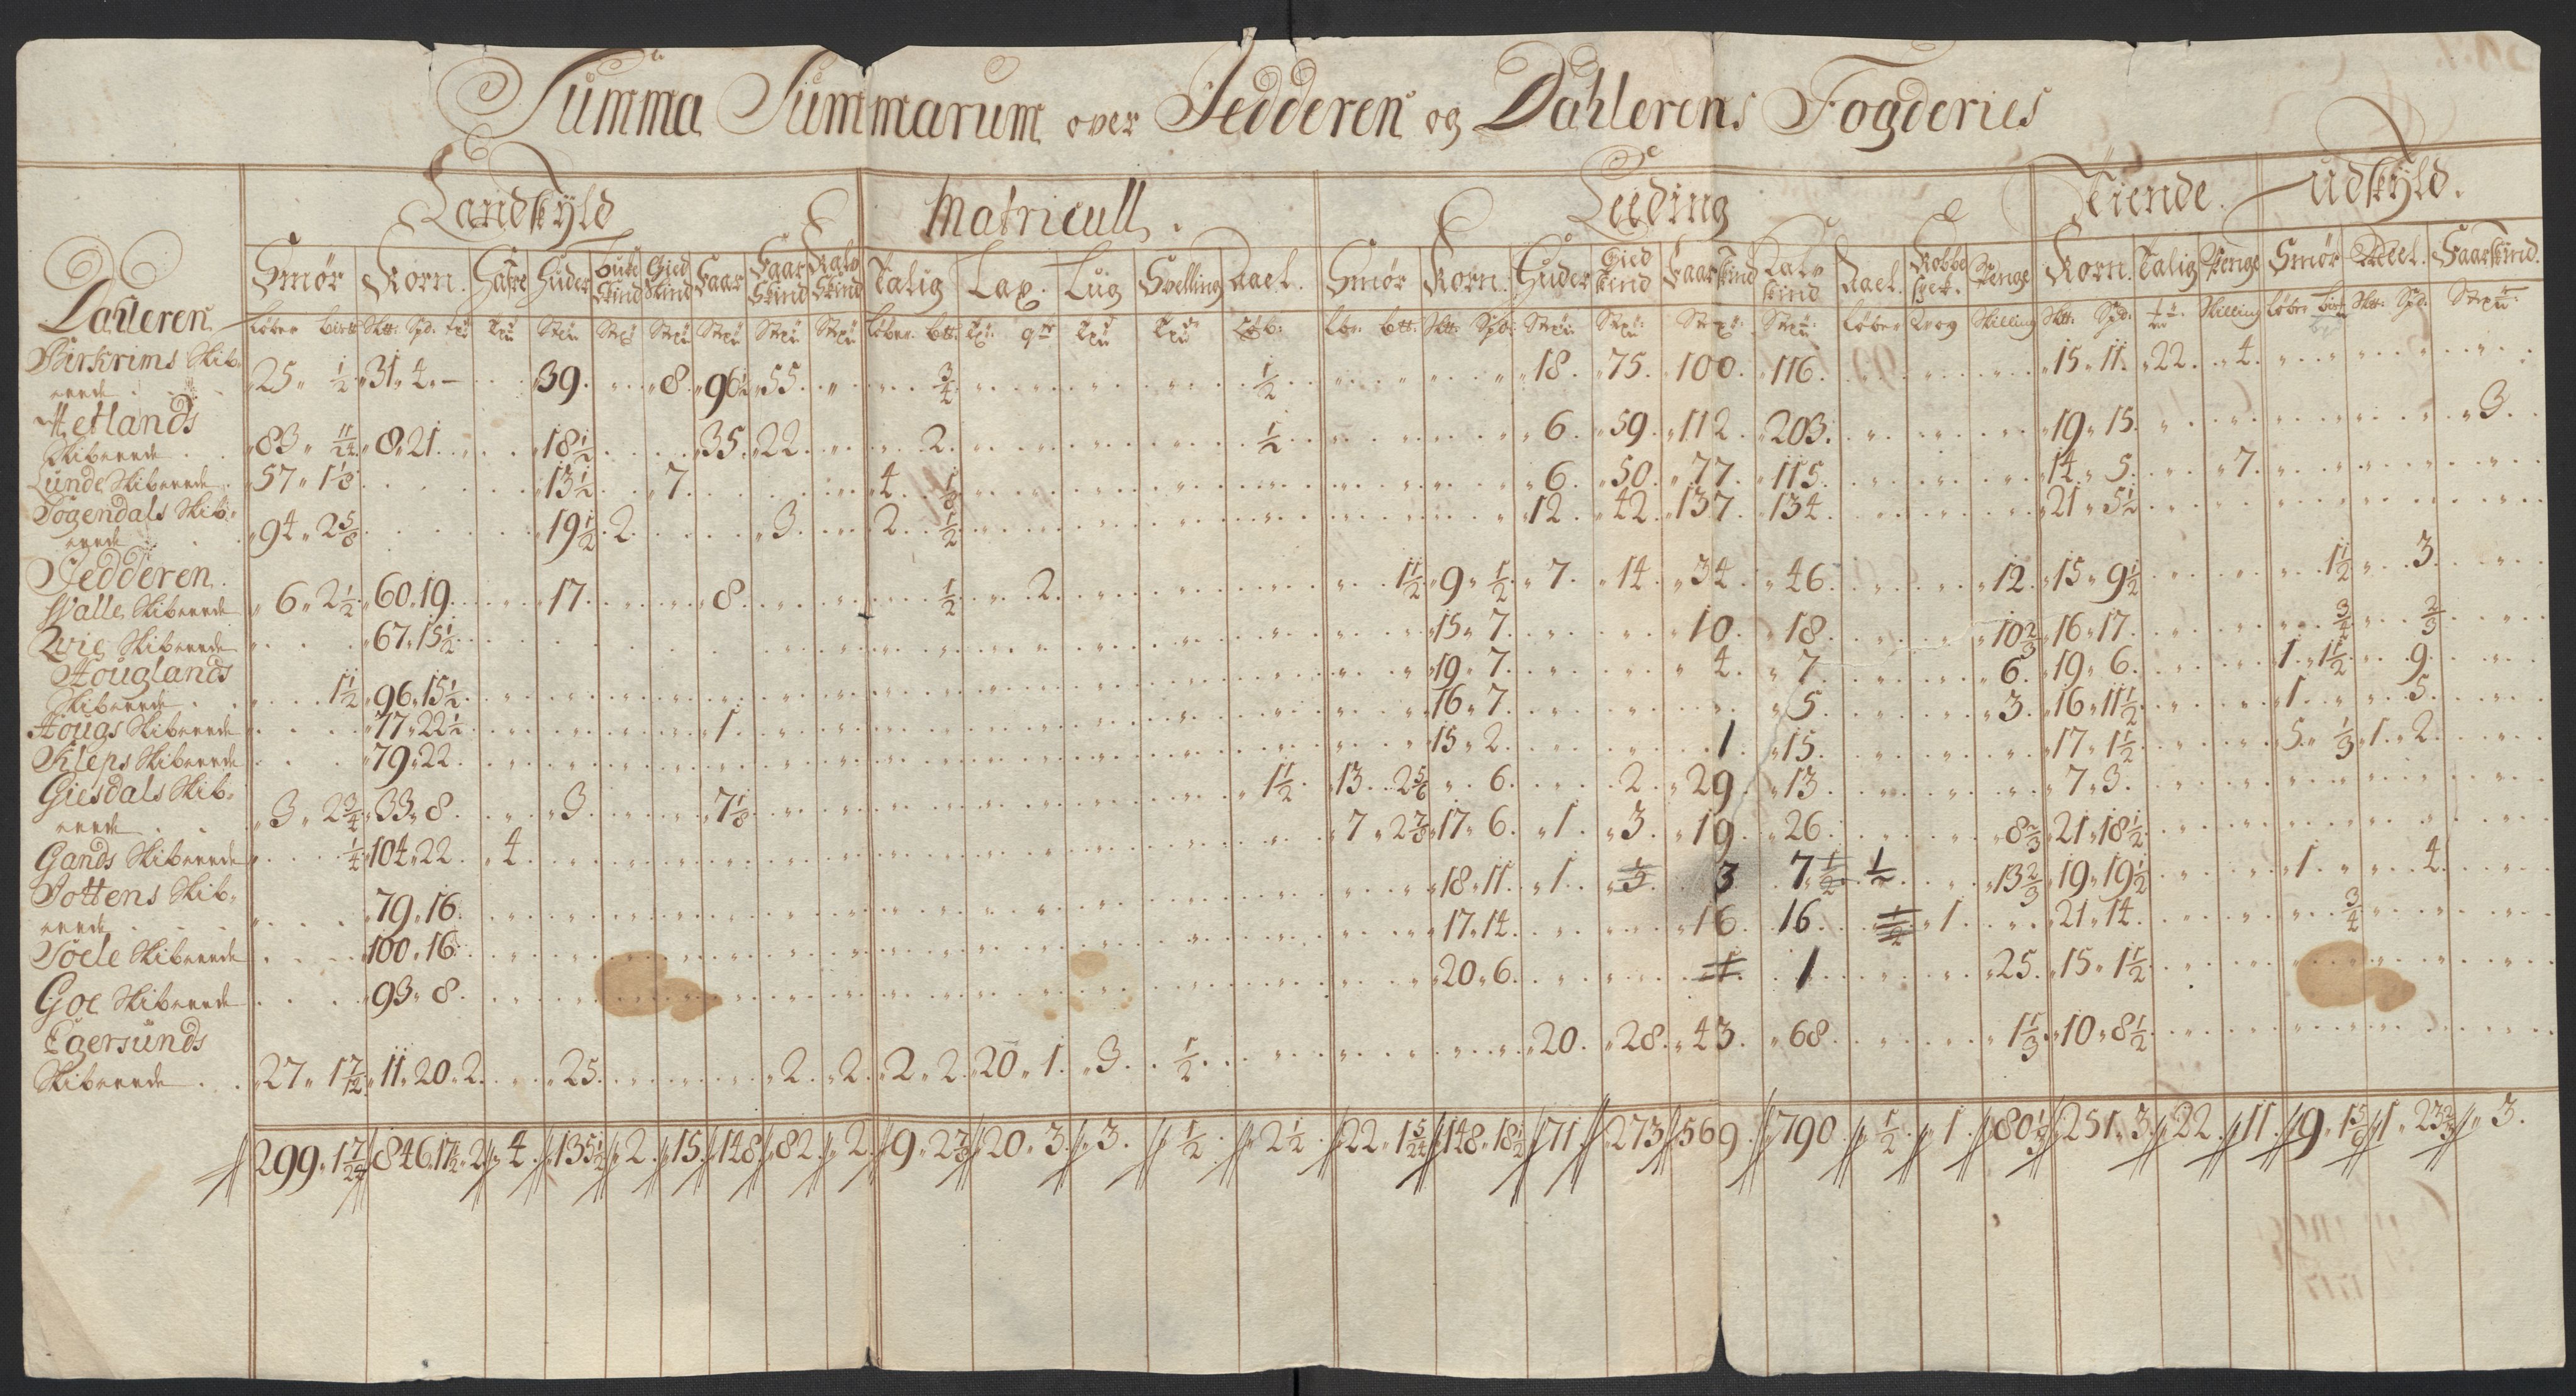 Summa Summarum over Jedderen og Dahlerens Fogderies
Landskÿld Matricull. Leeding Tiende. udskÿld.
Dahleren
Smør Korn. Hafre Huder Buke Skind Gied Skind Faar Faar Skind Kalv Skind Talig Lax. Lug Svelling Aael. Smør Korn. Huder Gied skind Faar skind Kalv skind Aael. Robbe Spek. Penge Korn. Talig Penge Smør Meel. Faarskind.
Løber Skilling Løber Skilling Skilling
Birkrims Skib,, reede 25 ½ 31 4 39 8 96½ 55 ¾ ½ 18 75 100 116 15 11 22 4
Hetlands Skibreede 83 11/24 8 21 18½ 35 22 2 ½ 6 59 112 203 19 15 3
Lunde Skibreede 57 1⅓ 13½ 7 4 ⅛ 6 50 77 115 14 5 7
Sogendals Skib,, reede 94 2⅝ 19½ 2 3 2 ½ 12 42 137 134 21 5½
Jedderen.
Walle Skibreede 6 2½ 60 19 17 8 ½ 2 1½ 9 ½ 7 14 34 46 12 15 9½ 1½ 3
Qvie Skibreede 67 15½ 15 7 10 18 10⅔ 16 17 ¾ ⅔
Houglands Skibreede 1½ 96 15½ 19 7 4 7 6 19 6 1 1½ 9
Hougs Skibreede 77 22½ 1 16 7 5 3 16 11½ 1 5
Kleps Skibreede 79 22 15 2 1 15 17 1½ 5 ⅓ 1 2
Giesdals Skib,, reede 3 2¾ 33 8 3 7½ 1½ 13 2⅚ 6 2 29 13 7 3
Gands Skibreede ¼ 104 22 4 7 2⅞ 17 6 1 3 19 26 8⅔ 21 18½
Sottens Skib,, reede 79 16 18 11 1 3 7½ ½ 13⅔ 19 19½ 1 4
Soele Skibreede 100 16 17 14 16 16 ½ 1 21 14 ¾
Goe Skibreede 93 8 20 6 1 1 25 15 1½
Egersunds Skibreede 27 17/12 11 20 2 25 2 2 2 2 20 1 3 ½ 20 28 43 68 1⅓ 10 8½
299 1 7/24 846 17½ 2 4 135½ 2 15 148 82 2 9 2⅞ 20 3 3 ½ 2½ 22 1 5/24 148 18½ 71 273 569 790 ½ 1 80⅓ 251 3 22 11 9 1⅚ 1 23⅔ 3